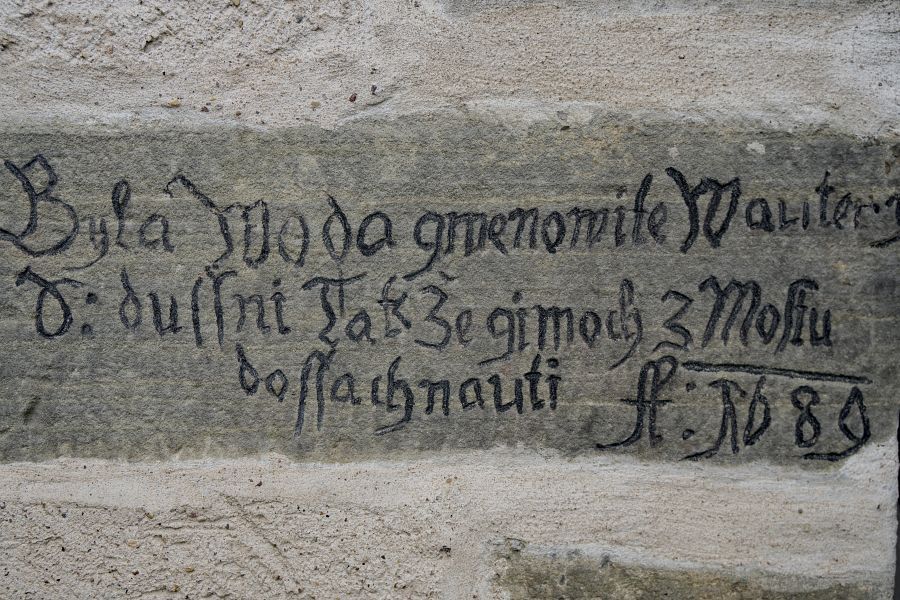 Byla Woda gmenowite Wauter
d: dussni Tak Že gi moch z Mostu
dossachnauti A: 1689